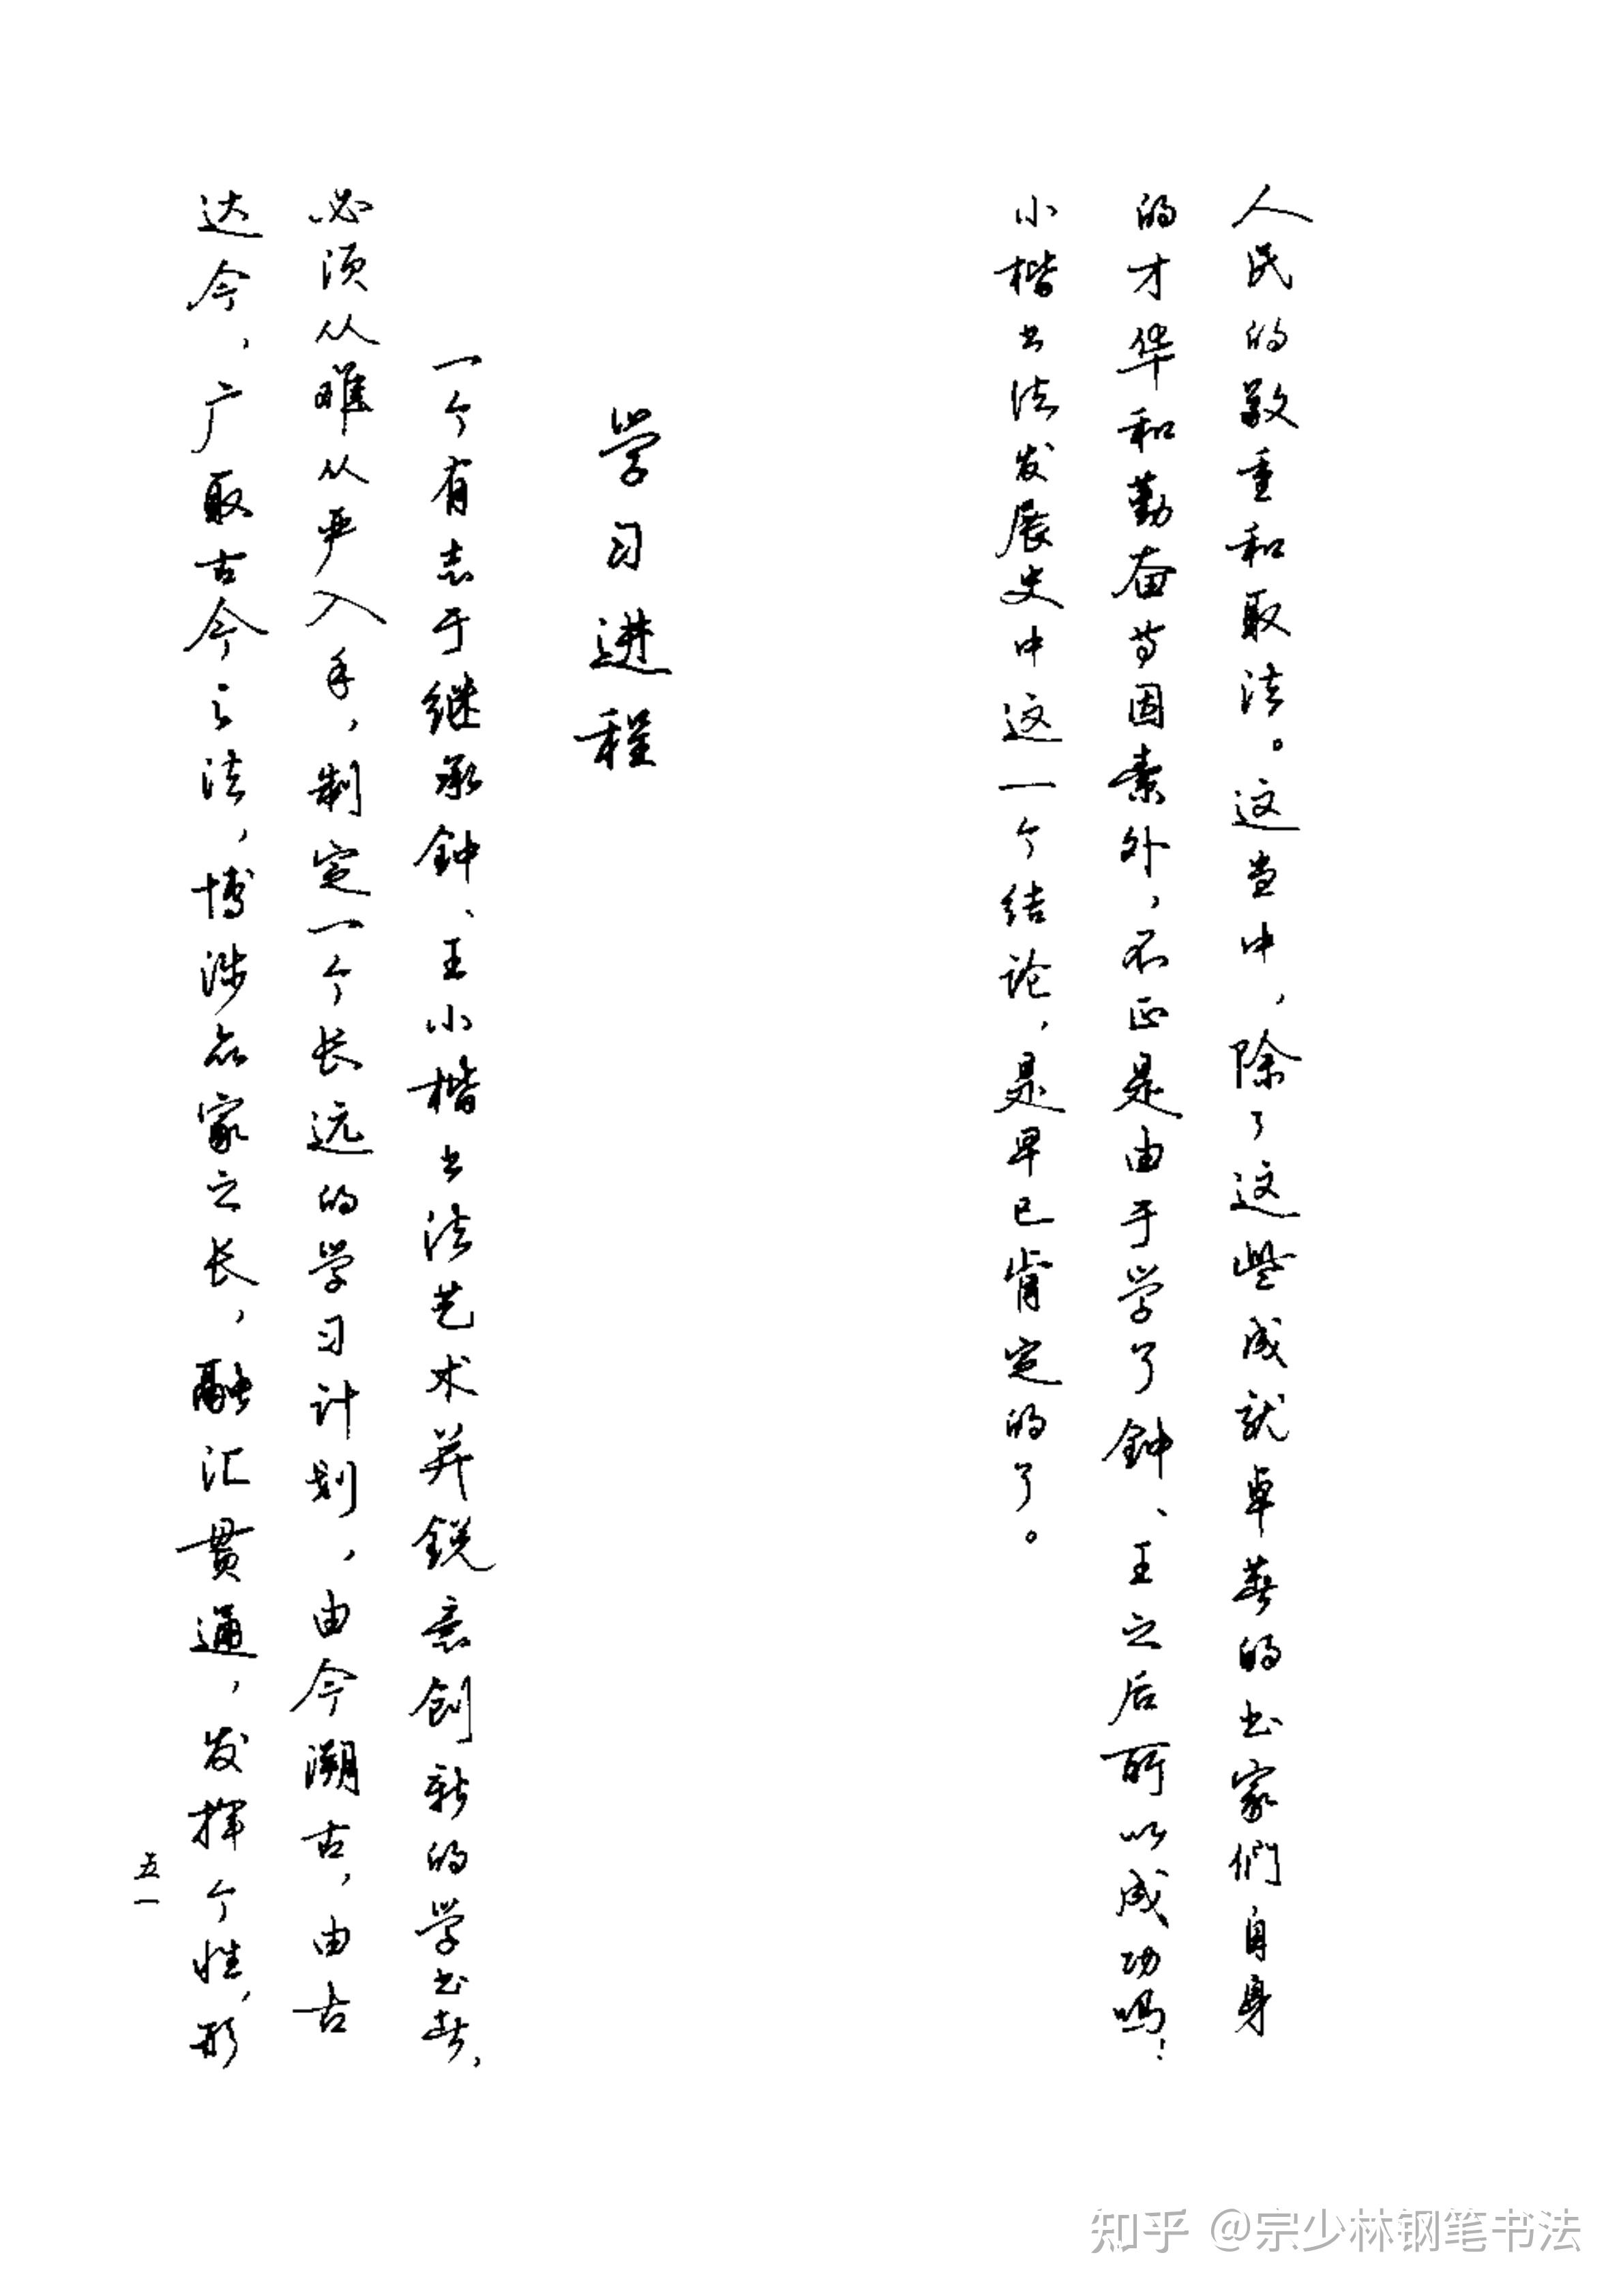 人民的敬重和取法。这当中，除了这些成就卓著的书家们自身
的才华和勤奋等因素外，不正是由于学了钟、王之后所以成功吗！
小楷书法发展史中这一个结论，是早已肯定的了。
学习进程
一个有志于继承钟、王小楷书法艺术并锐意创新的学书者，
必须从难从严入手，制定一个长远的学习计划，由今溯古，由古
达今，广取古今之法，博涉众家之长，融汇贯通，发挥个性，形
五一
知乎 @宗少林钢笔书法